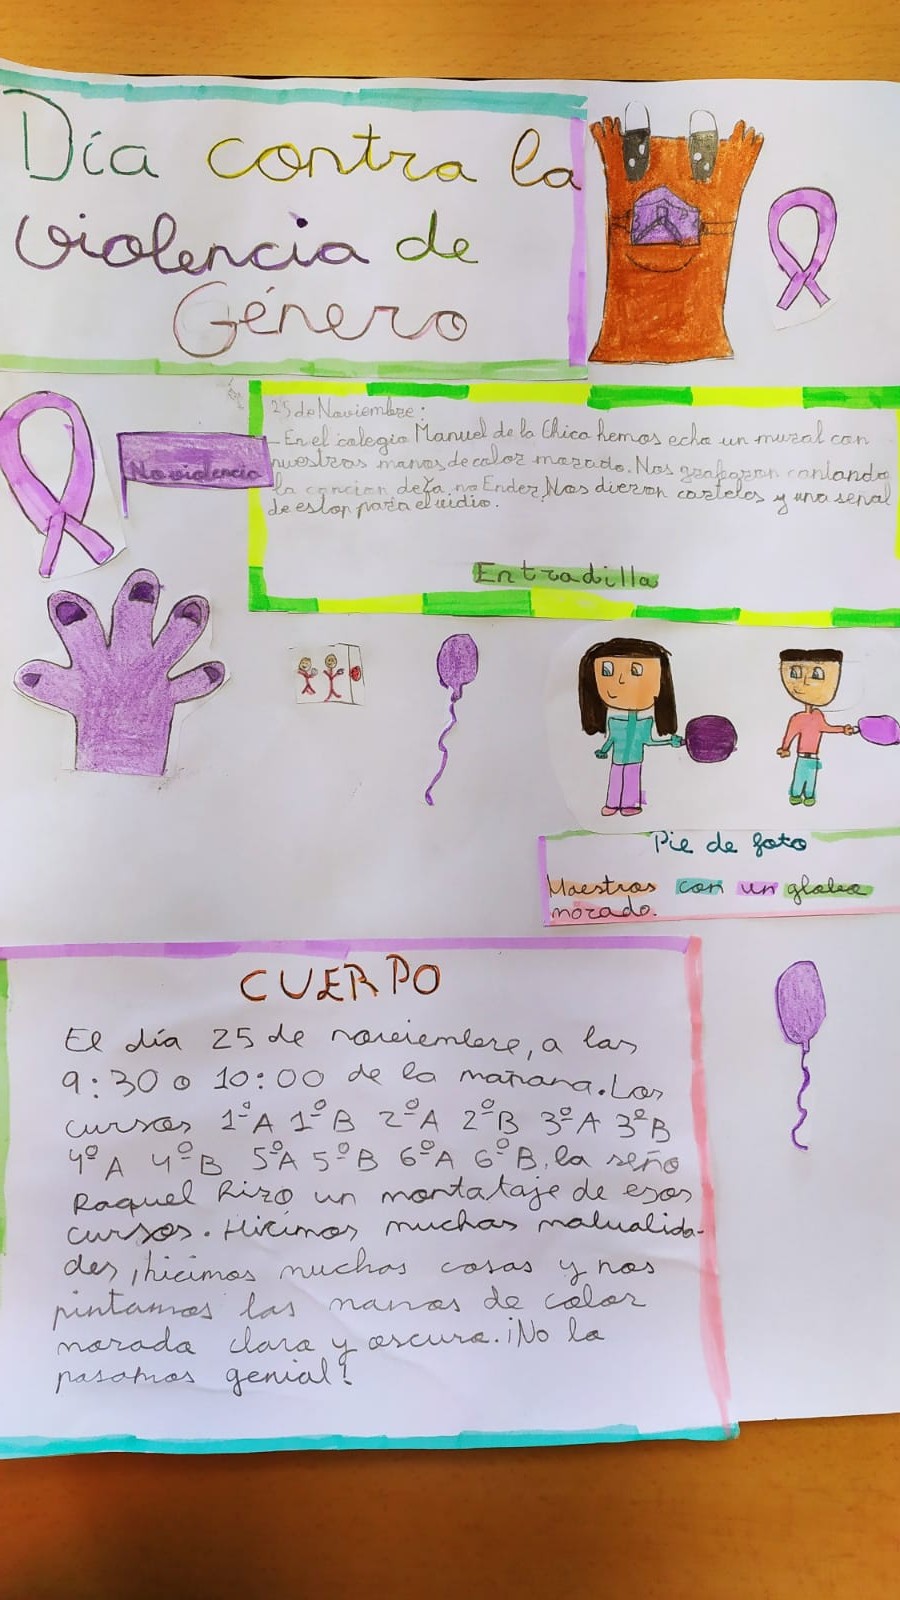 Día contra la
violencia de
Género
No violencia
25 de Noviembre:
- En el colegio Manuel de la Chica hemos echo un mural con
nuestras manos de color morado. Nos grabaron cantando
la cancion de Ya no Ender. Nos dieron carteles y una señal
de estop para el vidio.
Entradilla
Pie de foto
Maestros con un globo
morado.
CUERPO
El día 25 de noviembre, a las
9:30 o 10:00 de la mañana. Los
cursos 1ºA 1ºB 2ºA 2ºB 3ºA 3ºB
4ºA 4ºB 5ºA 5ºB 6ºA 6ºB. la seño
Raquel hizo un montataje de esos
cursos. Hicimos muchas malualida-
des, hicimos muchas cosas y nos
pintamos las manos de color
morada clara y oscura. ¡No la
pasamos genial!